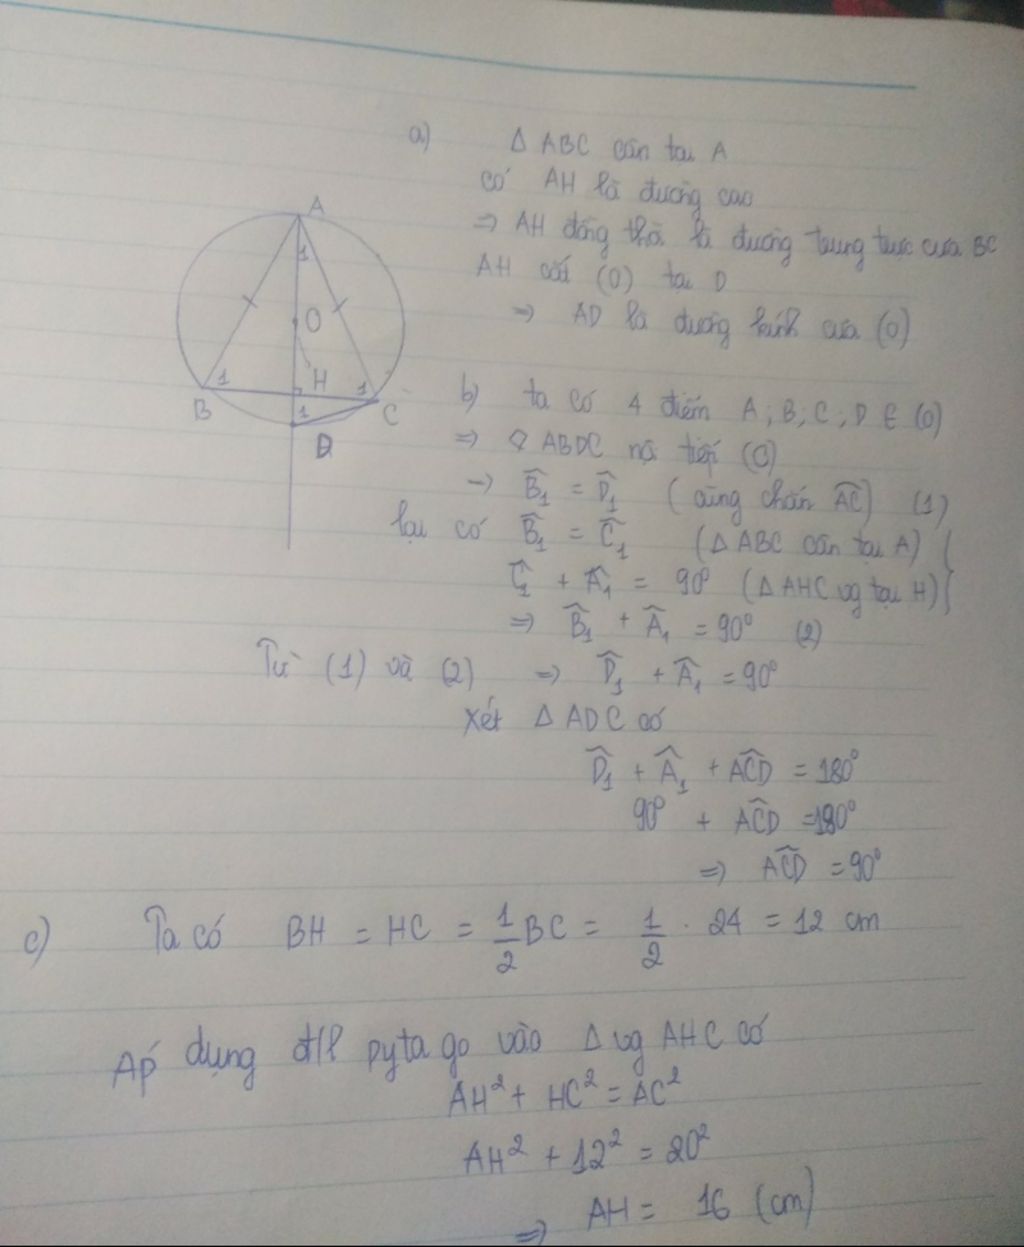 a) Δ ABC cân tại A
có AH là đường cao
=> AH đồng thời là đường trung trực của BC
AH cắt (O) tại D
=> AD là đường kính của (O)
A
1
O
H
B
1
1
C
1
D
b) ta có 4 điểm A; B; C; D ∈ (O)
=> ABDC nội tiếp (O)
-> B̂₁ = D̂₁ (cùng chắn AC) (1)
lại có B̂₁ = Ĉ₁ (Δ ABC cân tại A)
Ĉ₁ + Â₁ = 90° (Δ AHC vg tại H)
=> B̂₁ + Â₁ = 90° (2)
Từ (1) và (2) => D̂₁ + Â₁ = 90°
Xét Δ ADC có
D̂₁ + Â₁ + AĈD = 180°
90° + AĈD = 180°
=> AĈD = 90°
c) Ta có BH = HC = 1/2 BC = 1/2 . 24 = 12 cm
Áp dụng đ/l pytago vào Δ vg AHC có
AH² + HC² = AC²
AH² + 12² = 20²
=> AH = 16 (cm)